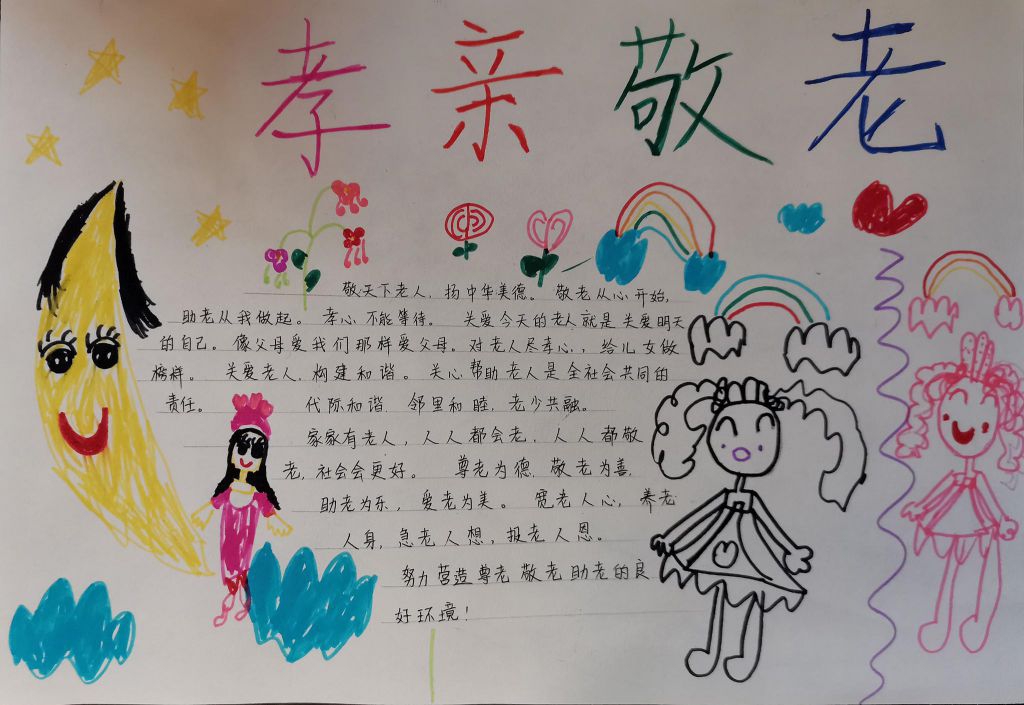 孝亲敬老
敬天下老人，扬中华美德。 敬老从心开始，
助老从我做起。 孝心不能等待。 关爱今天的老人就是关爱明天
的自己。像父母爱我们那样爱父母。对老人尽孝心，，给儿女做
榜样。 关爱老人，构建和谐。 关心帮助老人是全社会共同的
责任。 代际和谐，邻里和睦，老少共融。
家家有老人，人人都会老，人人都敬
老，社会会更好。 尊老为德，敬老为善，
助老为乐，爱老为美。 宽老人心，养老
人身，急老人想，报老人恩。
努力营造尊老敬老助老的良
好环境！